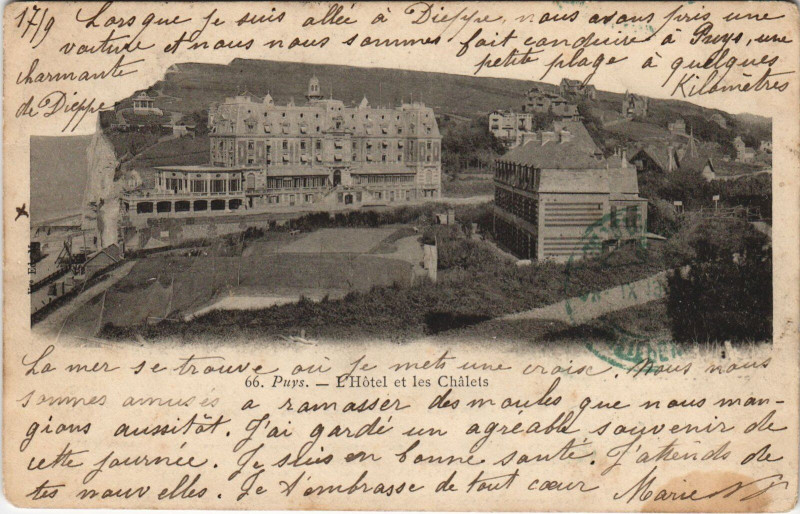 17/9 Lorsque je suis allée à Dieppe, nous avons pris une
voiture et nous nous sommes fait conduire à Puys, une
charmante petite plage à quelques
Kilomètres
de Dieppe
x
La mer se trouve où je mets une croix. Nous nous
66. Puys. — L'Hôtel et les Châlets
sommes amusés a ramasser des moules que nous man-
gions aussitôt. J'ai gardé un agréable souvenir de
cette journée. Je suis en bonne santé. J'attends de
tes nouvelles. Je t'embrasse de tout cœur Marie